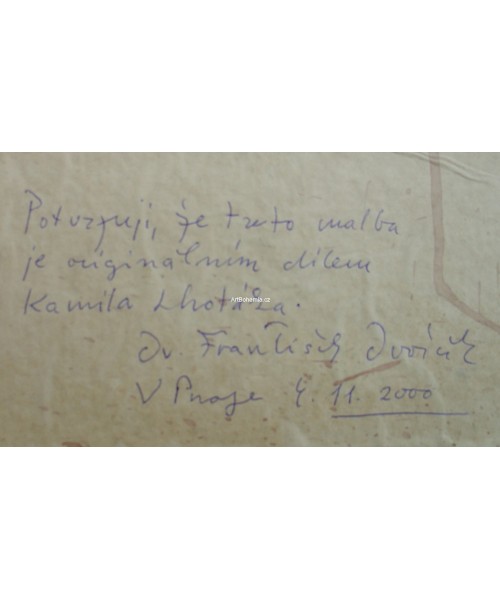 Potvrzuji, že tato malba
je originálním dílem
Kamila Lhotáka.
ArtBohemia.cz
Dr. František Dvořák
V Praze 4. 11. 2000